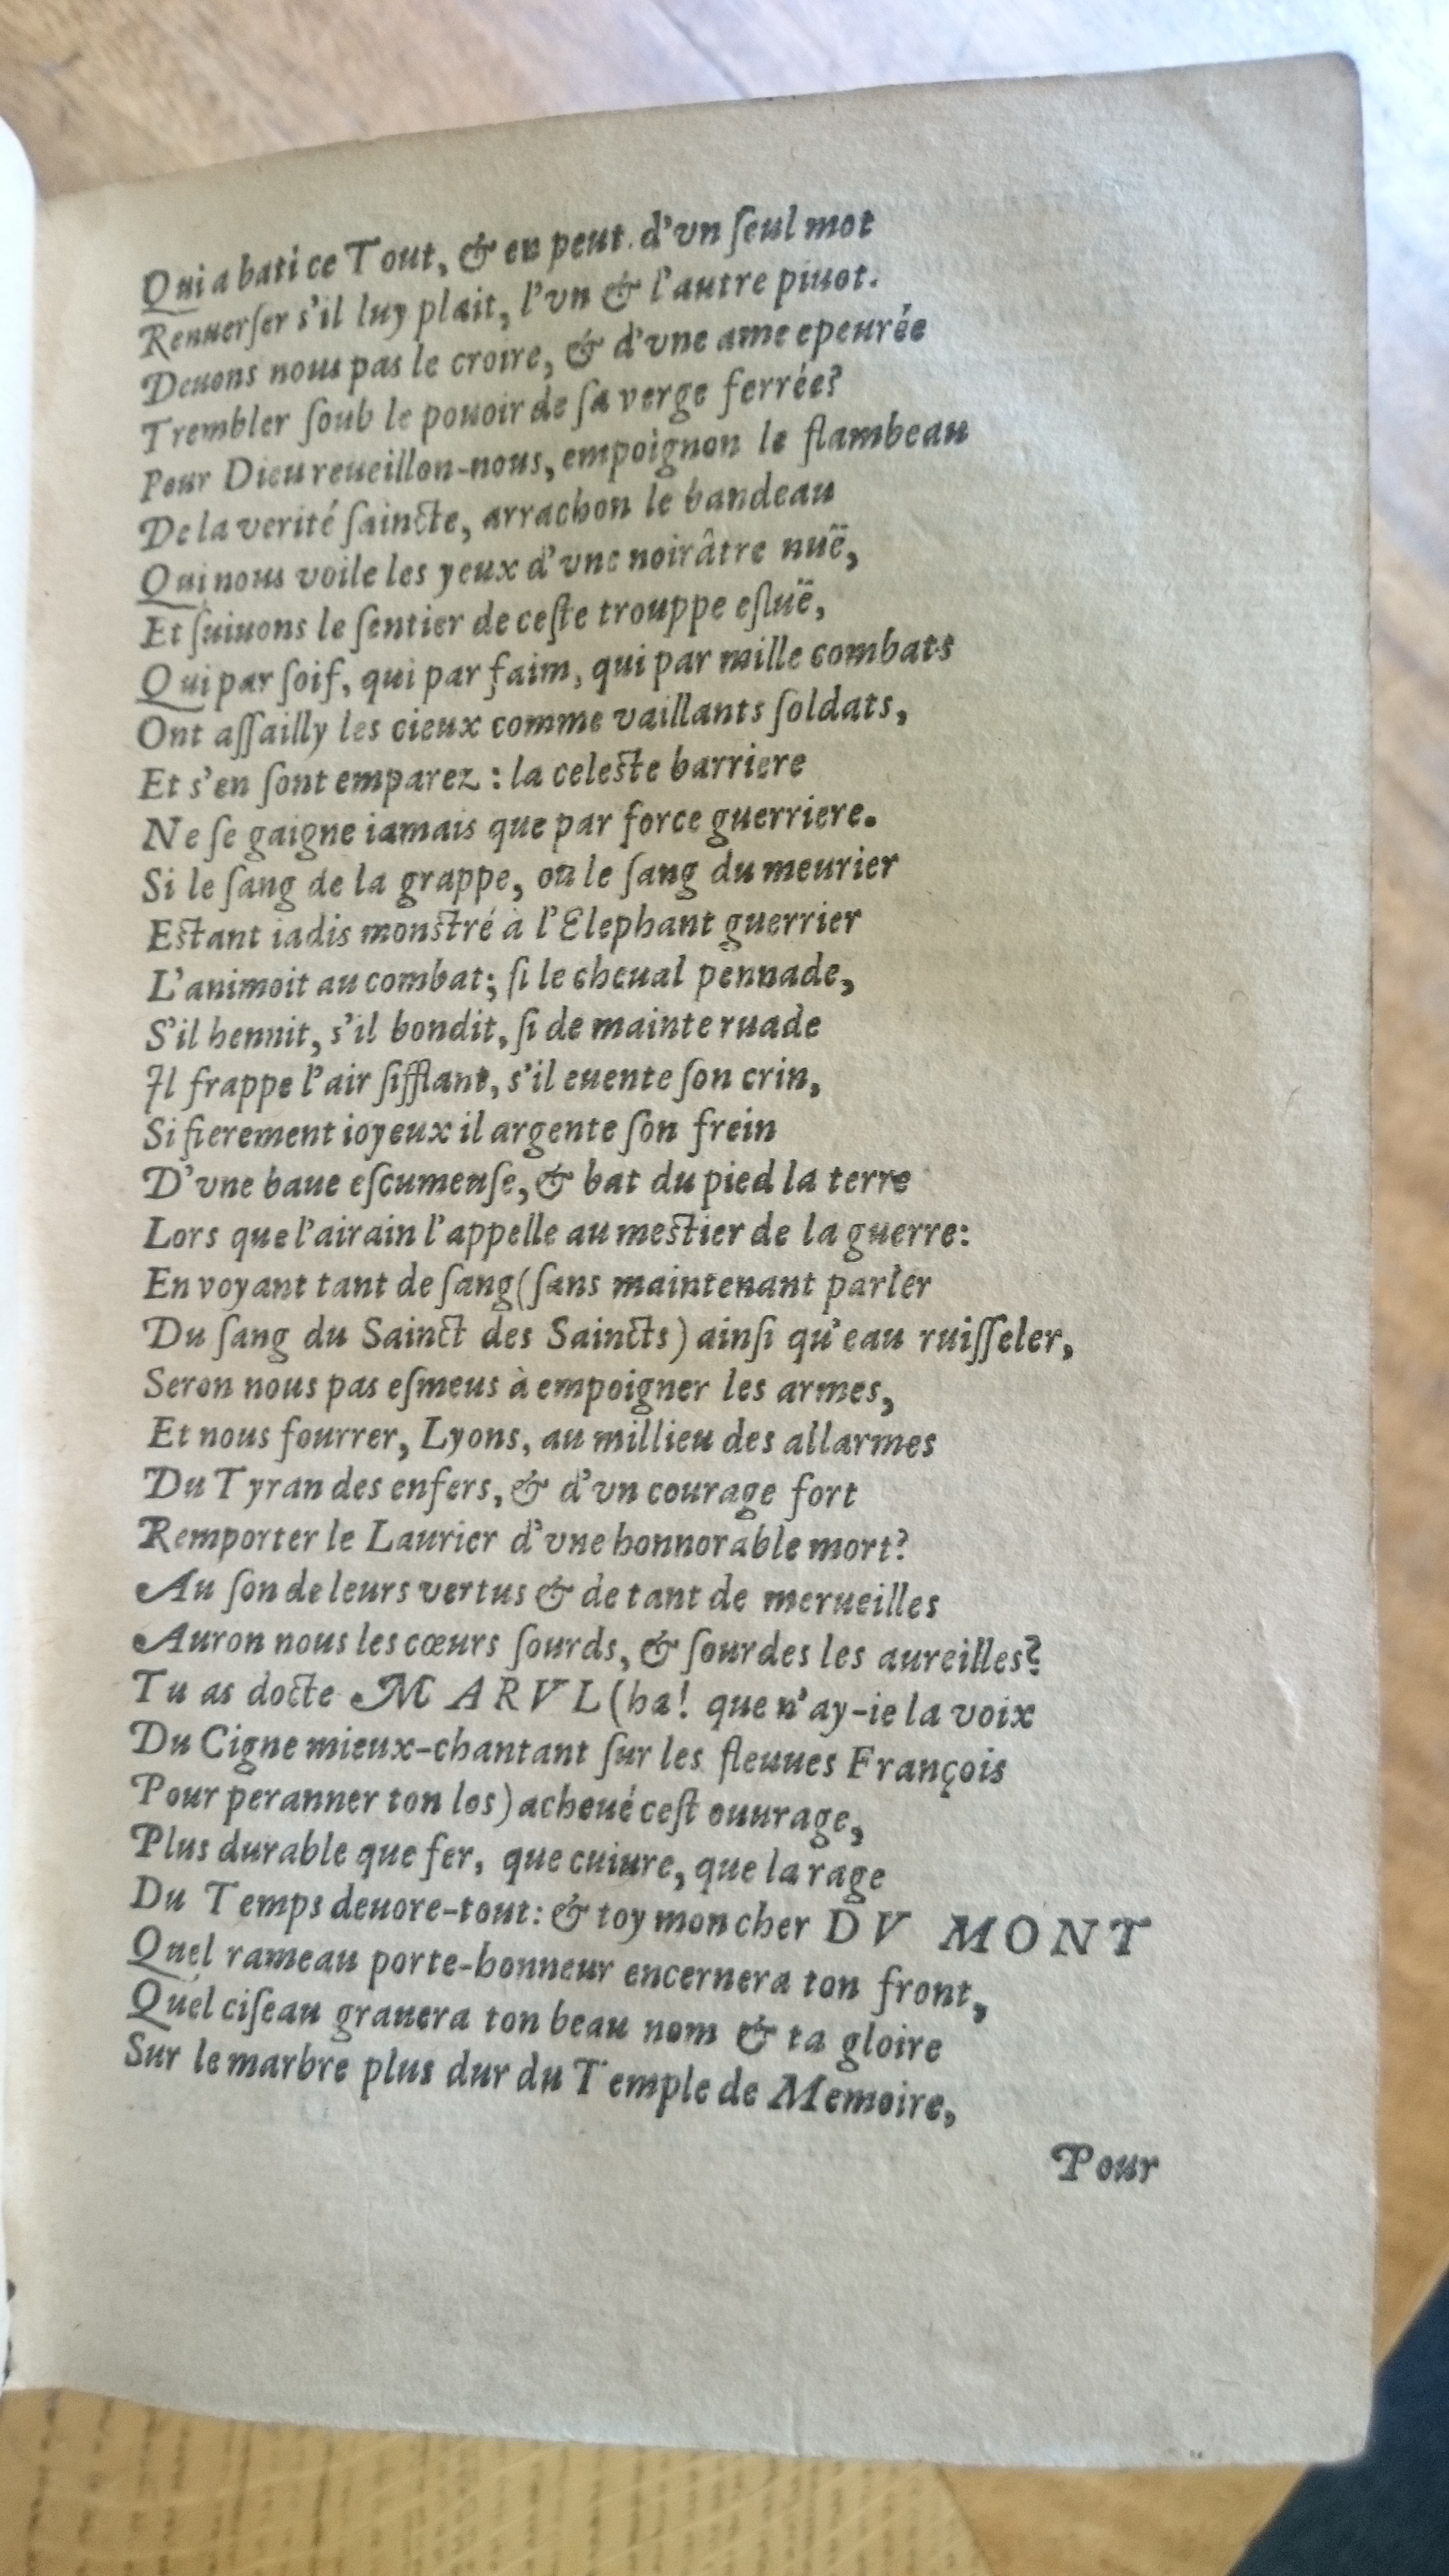 Qui a bati ce Tout, & en peut d'vn ſeul mot
Renuerſer s'il luy plait, l'vn & l'autre piuot.
Deuons nous pas le croire, & d'vne ame epeurée
Trembler ſoub le pouoir de ſa verge ferrée?
Pour Dieu reueillon-nous, empoignon le flambeau
De la verité ſaincte, arrachon le bandeau
Qui nous voile les yeux d'vne noirâtre nuë,
Et ſuiuons le ſentier de ceſte trouppe eſluë,
Qui par ſoif, qui par faim, qui par mille combats
Ont aſſailly les cieux comme vaillants ſoldats,
Et s'en ſont emparez : la celeſte barriere
Ne ſe gaigne iamais que par force guerriere.
Si le ſang de la grappe, ou le ſang du meurier
Eſtant iadis monſtré à l'Elephant guerrier
L'animoit au combat; ſi le cheual pennade,
S'il hennit, s'il bondit, ſi de mainte ruade
Il frappe l'air ſifflant, s'il euente ſon crin,
Si fierement ioyeux il argente ſon frein
D'vne baue eſcumeuſe, & bat du pied la terre
Lors que l'airain l'appelle au meſtier de la guerre:
En voyant tant de ſang (ſans maintenant parler
Du ſang du Sainct des Saincts) ainſi qu'eau ruiſſeler,
Seron nous pas eſmeus à empoigner les armes,
Et nous fourrer, Lyons, au millieu des allarmes
Du Tyran des enfers, & d'vn courage fort
Remporter le Laurier d'vne honnorable mort?
Au ſon de leurs vertus & de tant de merueilles
Auron nous les cœurs ſourds, & ſourdes les aureilles?
Tu as docte MARVL (ha! que n'ay-ie la voix
Du Cigne mieux-chantant ſur les fleuues François
Pour peranner ton los) acheué ceſt ouurage,
Plus durable que fer, que cuiure, que la rage
Du Temps deuore-tout: & toy mon cher DV MONT
Quel rameau porte-bonneur encernera ton front,
Quel ciſeau grauera ton beau nom & ta gloire
Sur le marbre plus dur du Temple de Memoire,
Pour